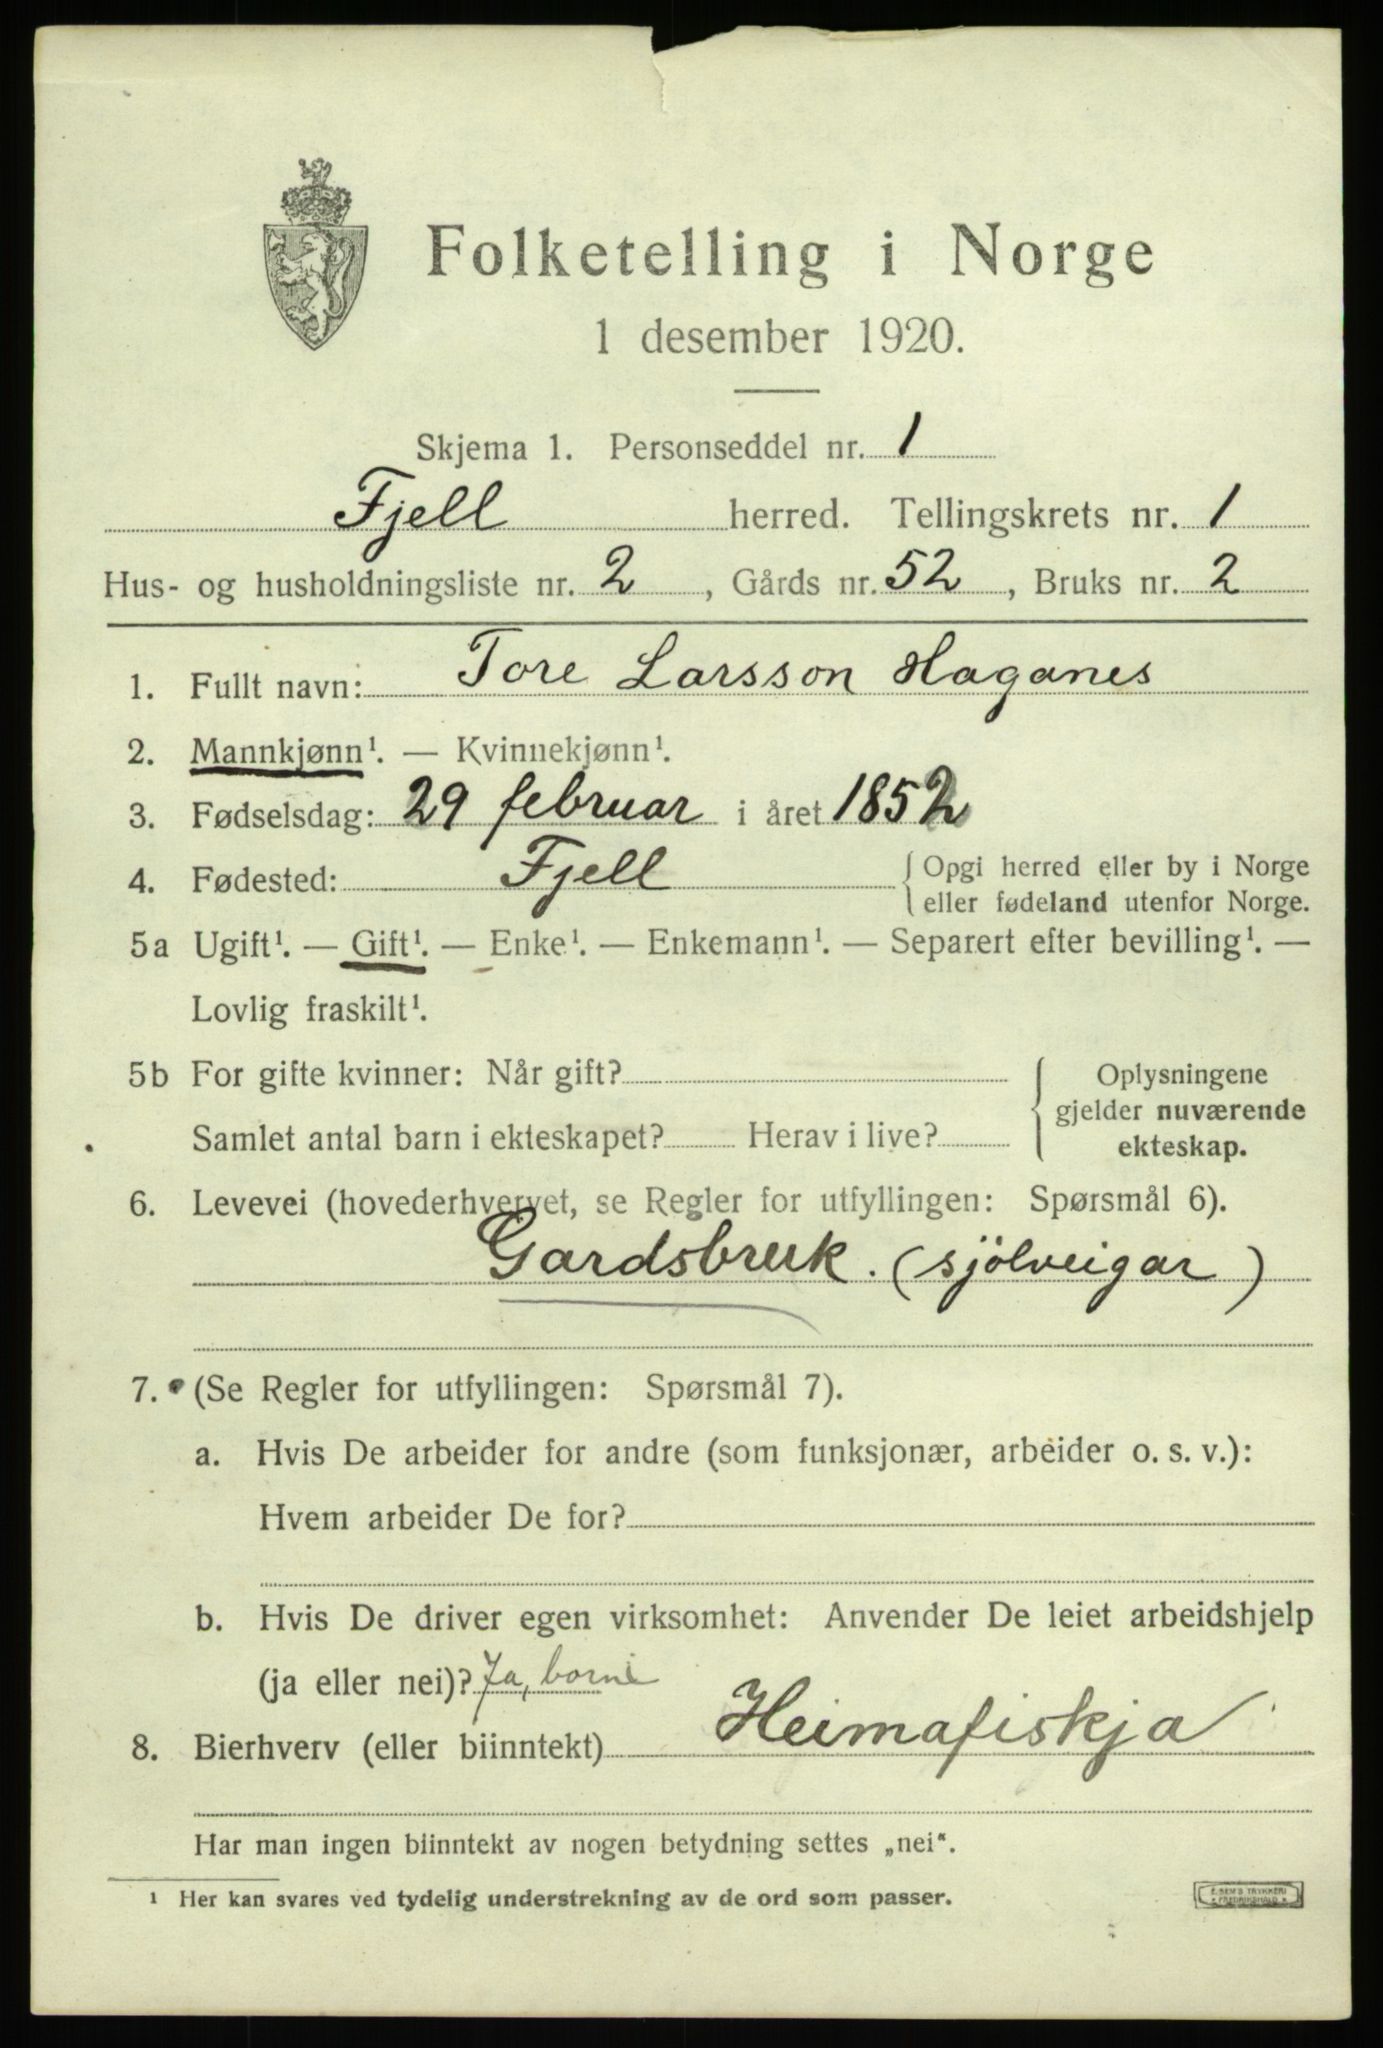 Folketelling i Norge
1 desember 1920.
Skjema 1. Personseddel nr. 1
Fjell herred. Tellingskrets nr. 1
Hus- og husholdningsliste nr. 2, Gårds nr. 52, Bruks nr. 2
1. Fullt navn: Tore Larsson Haganes
2. Mannkjønn¹. — Kvinnekjønn¹.
3. Fødselsdag: 29 februar i året 1852
4. Fødested: Fjell
Opgi herred eller by i Norge
eller fødeland utenfor Norge.
5a Ugift¹. — Gift¹. — Enke¹. — Enkemann¹. — Separert efter bevilling¹. —
Lovlig fraskilt¹.
5b For gifte kvinner: Når gift?
Samlet antal barn i ekteskapet? Herav i live?
Oplysningene
gjelder nuværende
ekteskap.
6. Levevei (hovederhvervet, se Regler for utfyllingen: Spørsmål 6).
Gardsbruk. (sjölveigar)
7. (Se Regler for utfyllingen: Spørsmål 7).
a. Hvis De arbeider for andre (som funksjonær, arbeider o. s. v.):
Hvem arbeider De for?
b. Hvis De driver egen virksomhet: Anvender De leiet arbeidshjelp
(ja eller nei)? Ja, borni
8. Bierhverv (eller biinntekt) Heimafiskja
Har man ingen biinntekt av nogen betydning settes „nei“.
¹ Her kan svares ved tydelig understrekning av de ord som passer.
E. SEM'S TRYKKERI
FREDRIKSHALD